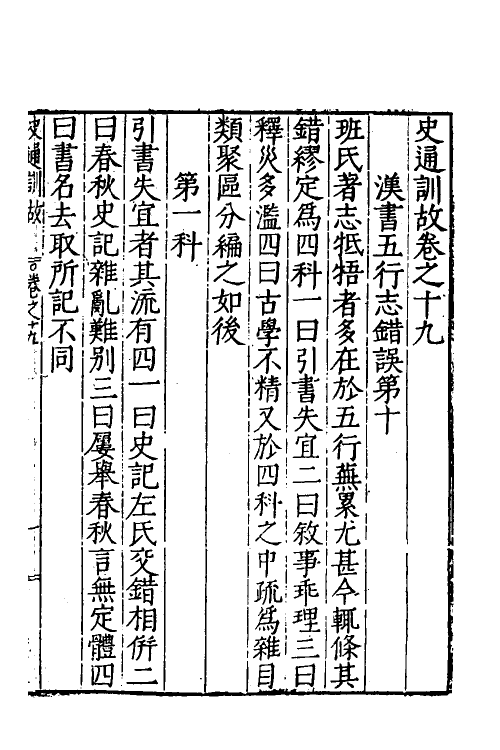 史通訓故卷之十九
漢書五行志錯誤第十
班氏著志牴牾者多在於五行蕪累尤甚今輒條其
錯繆定爲四科一曰引書失宜二曰敘事乖理三曰
釋災多濫四曰古學不精又於四科之中疏爲雜目
類聚區分編之如後
第一科
引書失宜者其流有四一曰史記左氏交錯相併二
曰春秋史記雜亂難別三曰屢舉春秋言無定體四
曰書名去取所記不同
史通訓故
卷之十九